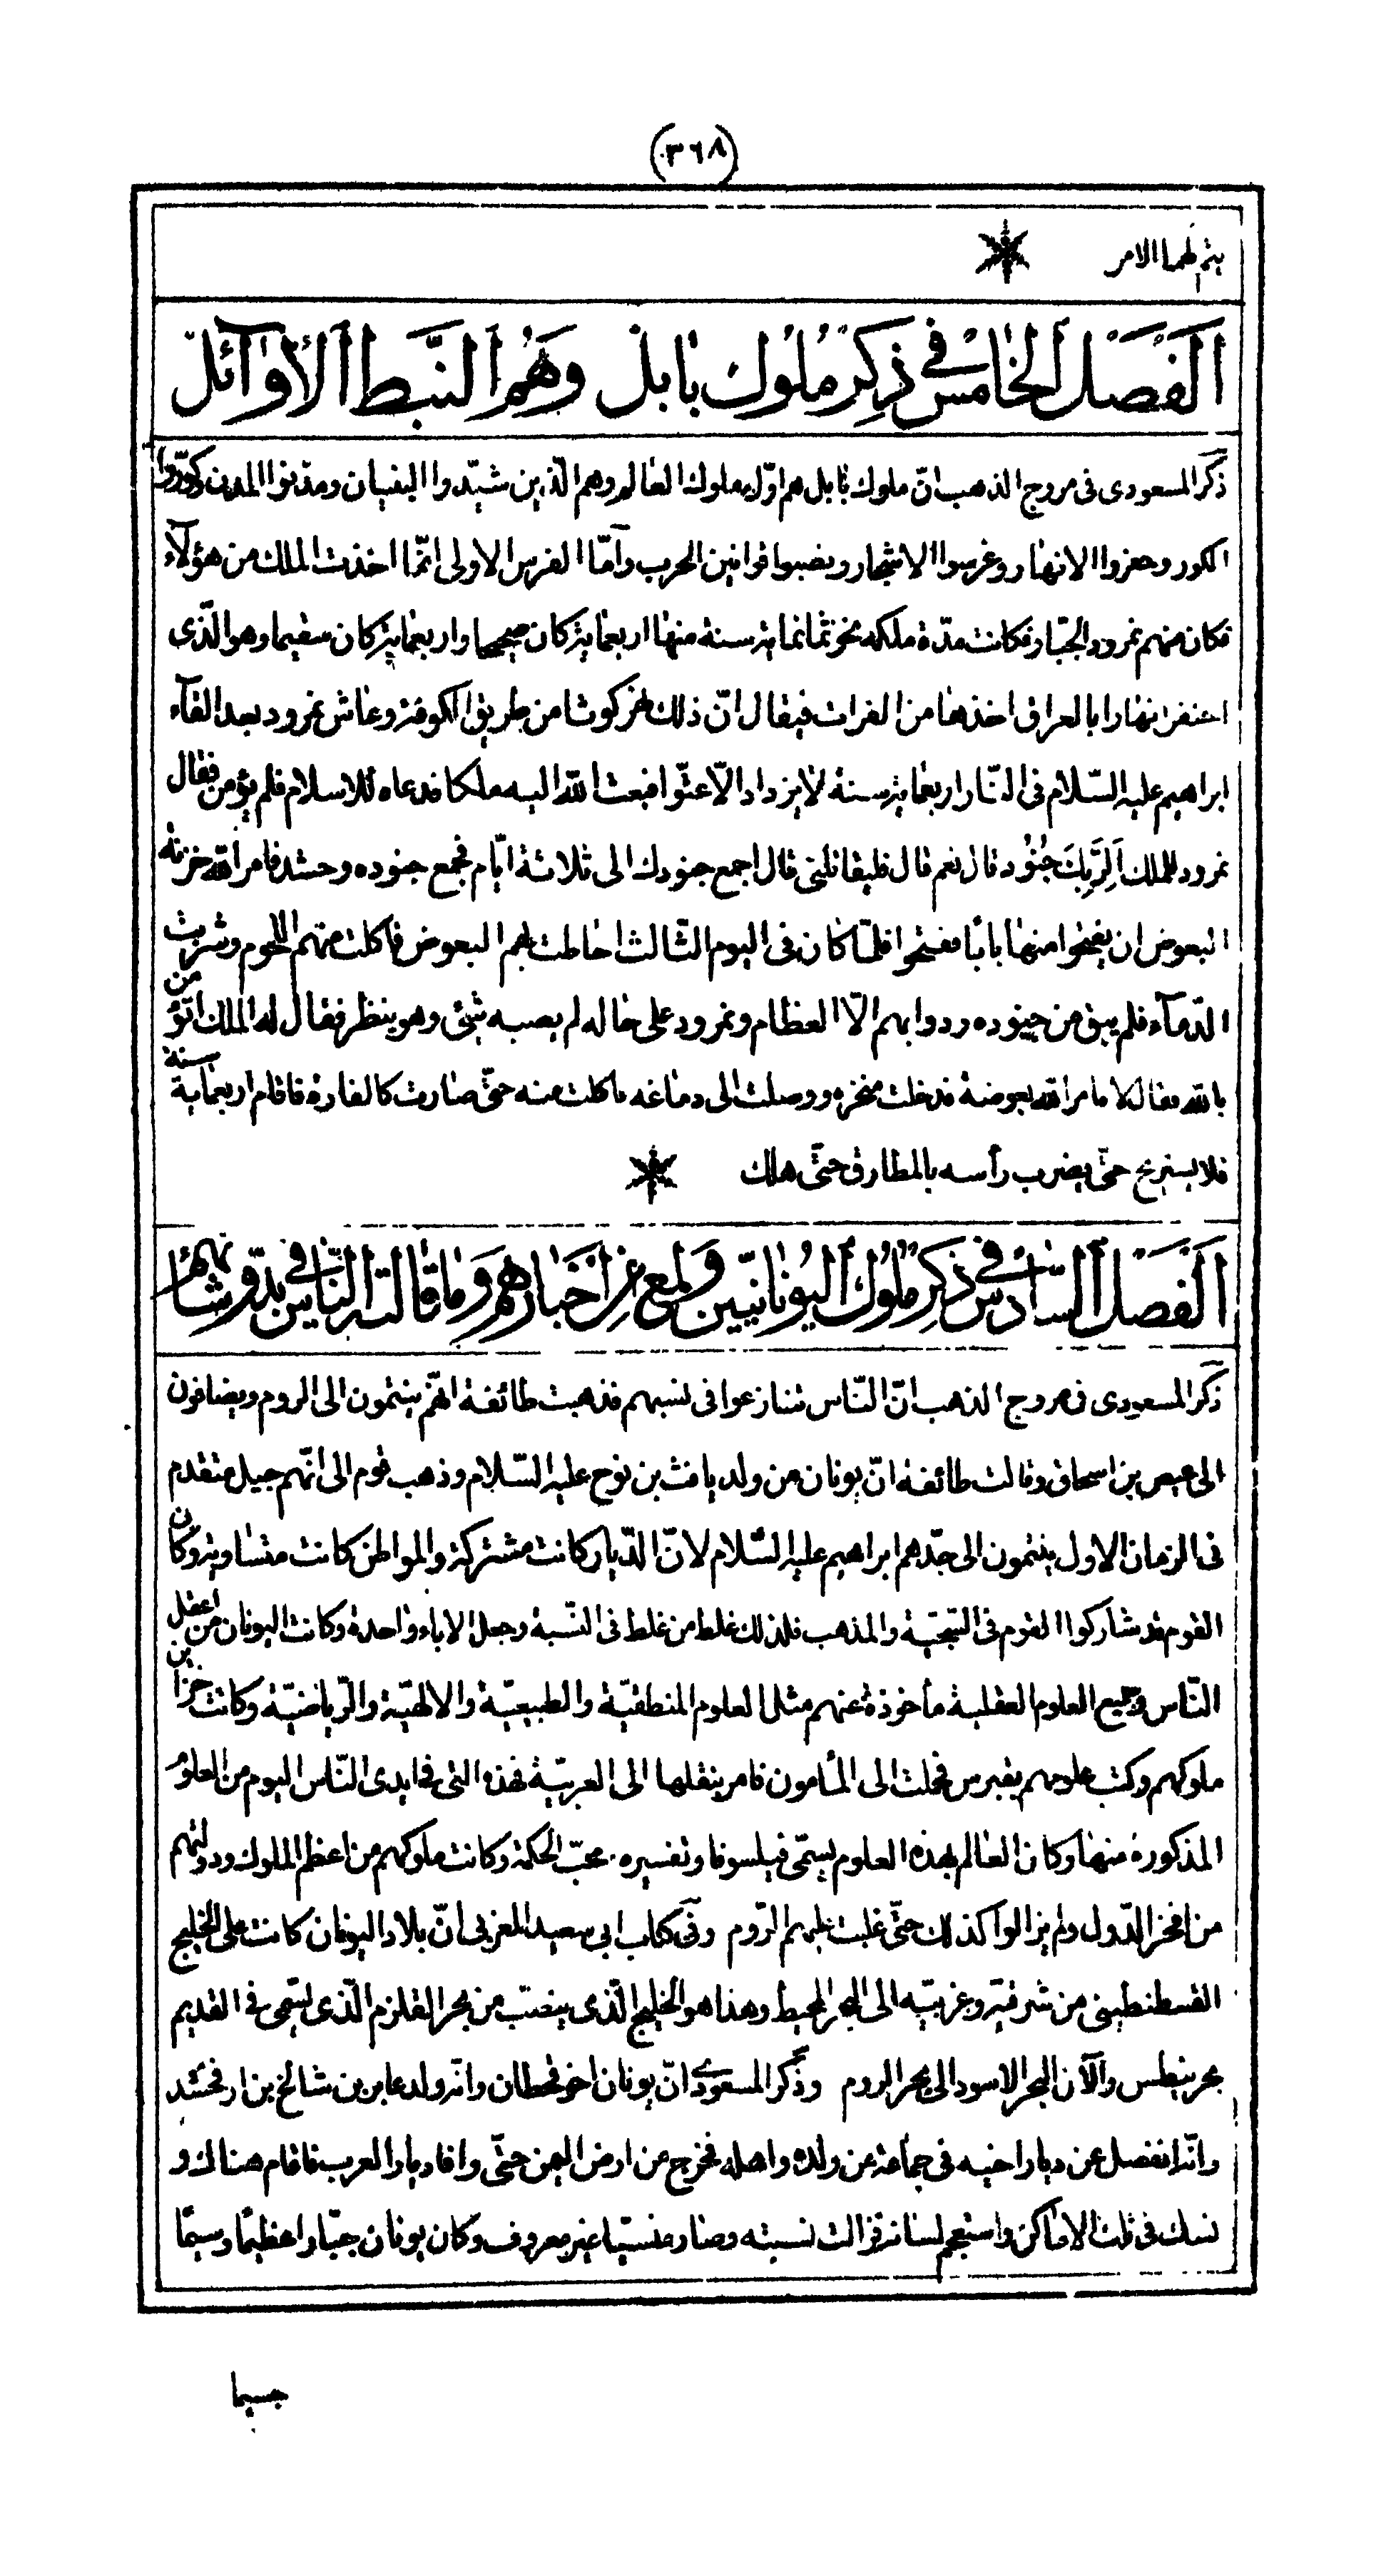 (٣٦٨)
يتم لهما الامر
اَلفَصْل اَلخامسْ فى ذِكِر مُلوُك بابل وهُم النَّبَط الأوآئل
ذكر المسعودى فى مروج الذهب انّ ملوك بابل هم اوّل ملوك العالم وهم الّذين شيّدوا البنيان ومدنوا المدن وكوّروا
الكور وحفروا الانهار وغرسوا الاشجار ونصبوا قوانين الحرب وآمّا الفرس الاولى انّما اخذت الملك من هؤلآء
فكان منهم نمرود الجبّار فكانت مدّة ملكه نحو ثمانماية سنة منها اربعماية كان صحيحا واربعماية كان سقيما وهو الّذى
احتفر انهارا بالعراق اخذها من الفرات فيقال انّ ذلك نهر كوثا من طريق الكوفة وعاش نمرود بعد القآء
ابراهيم عليه السّلام فى النّار اربعماية سنة لا يزداد الّا عتّوا فبعث الله اليه ملكا فدعاه للاسلام فلم يؤمن فقال
نمرود للملك اَلِرَبِّكَ جُنُود قال نعم قال فليقاتلنى قال اجمع جنودك الى ثلاثة ايّام فجمع جنوده وحشد فامر الله خزنة
البعوض ان يفتحوا منها بابا ففتحوا فلمّا كان فى اليوم الثّالث احاطت بهم البعوض فاكلت منهم اللحوم وشربت
الدّمآء فلم يبق من جنوده ودوابهم الّا العظام ونمرود على حاله لم يصبه شئ وهو ينظر فقال له الملك اتؤمن
بالله فقال لا فامر الله بعوضة فدخلت منخره ووصلت الى دماغه فاكلت منه حتّى صارت كالفارة فاقام اربعماية سنة
فلا يستريح حتّى يضرب رأسه بالمطارق حتّى هلك
اَلفَصْل اَلسّادِسْ فى ذكِر ملُوك اليُونانيّين ولمع من اخبارهم وَماقالته النّاس فى بدّو شانهم
ذكر المسعودى فى مروج الذهب انّ النّاس تنازعوا فى نسبهم فذهبت طائفة انّهم ينتمون الى الروم ويضافون
الى عيص بن اسحاق وقالت طائفة انّ يونان من ولد يافث بن نوح عليه السّلام وذهب قوم الى انّهم جيل متقدم
فى الزمان الاول ينتمون الى جدّهم ابراهيم عليه السّلام لانّ الدّيار كانت مشتركة والمواطن كانت متساوية وكان
القوم قد شاركوا القوم فى السّجيّة والمذهب فلذلك غلط من غلط فى النّسبة وجعل الاباء واحدة وكانت اليونان من اعقل
النّاس وجميع العلوم العقلية مأخوذة عنهم مثل العلوم المنطقيّة والطبيعيّة والالهيّة والرّياضيّة وكانت خزاين
ملوكهم وكتب علومهم بقبرس فحملت الى المأمون فامر بنقلها الى العربيّة فهذه التى فى ايدى النّاس اليوم من العلوم
المذكورة منها وكان العالم بهذه العلوم يسمّى فيلسوفا وتفسيره محبّ الحكمة وكانت ملوكهم من اعظم الملوك ودولتهم
من افخر الدّول ولم يزالوا كذلك حتّى غلبت عليهم الرّوم وفى كتاب ابى سعيد المغربى انّ بلاد اليونان كانت على الخليج
القسطنطينى من شرقيّه وغربيّه الى البحر المحيط وهذا هو الخليج الّذى ينصبّ من بحر القلزم الّذى يسّمى فى القديم
بحر بنطس والآن البحر الاسود الى بحر الروم وذكر المسعودى انّ يونان اخو قحطان وانّه ولد عابر بن شالخ بن ارفخشد
وانّه انفصل عن ديار اخيه فى جماعة من ولده واهله فخرج من ارض اليمن حتّى وافا ديار العرب فاقام هناك و
نسك فى تلك الاماكن واستعجم لسانه فزالت نسبته وصار منسيّا غير معروف وكان يونان جبّارا عظيمًا وسيمًا
جسيما